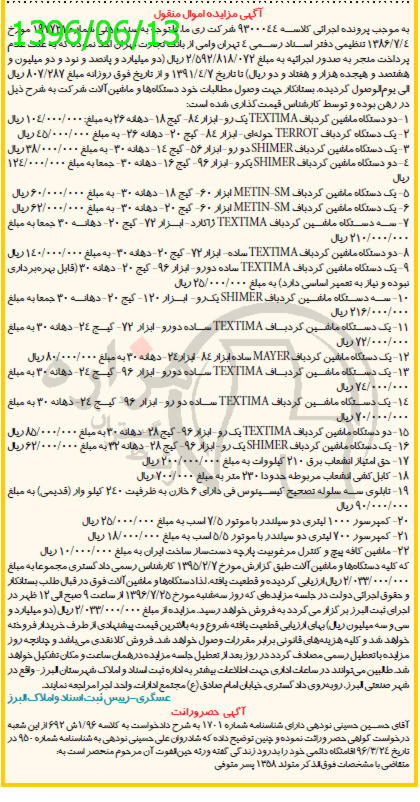 آگهی مزایده اموال منقول
1396/06/13
به موجب پرونده اجرائی کلاسه ۹۳۰۰۰۴۴ شرکت ری
۱۳۸۶/۷/۴ تنظیمی دفتر اسناد رسمی ۴ تهران وامی از بانک تجارت تهران اخذ نموده که به علت عدم
پرداخت منجر به صدور اجرائیه به مبلغ ۲/۵۹۲/۸۱۸/۰۷۲ ریال (دو میلیارد و پانصد و نود و دو میلیون و
هشتصد و هیجده هزار و هفتاد و دو ریال) تا تاریخ ۱۳۹۱/۴/۷ و از تاریخ فوق روزانه مبلغ ۸۰۷/۲۸۷ ریال
الی یوم‌الوصول گردیده، بستانکار جهت وصول مطالبات خود دستگاهها و ماشین آلات شرکت به شرح ذیل
در رهن بوده و توسط کارشناس قیمت گذاری شده است:
۱-دو دستگاه ماشین گردباف TEXTIMA یک رو- ابزار ۸۴- گیج ۱۸- دهانه ۲۶ به مبلغ ۱۰۴/۰۰۰/۰۰۰ ریال
۲- یک دستگاه گردباف TERROT حوله‌ای- ابزار ۸۴- گیج ۲۰- دهانه ۲۶- به مبلغ ۴۵/۰۰۰/۰۰۰ ریال
۳- یک دستگاه گردباف SHIMER دو رو- ابزار ۵۶- گیج ۱۴- دهانه ۳۰- به مبلغ ۳۸/۰۰۰/۰۰۰ ریال
۴- دو دستگاه ماشین گردباف SHIMER یکرو- ابزار ۹۶- گیج ۱۶- دهانه ۳۰- جمعا به مبلغ ۱۲۴/۰۰۰/۰۰۰
ریال
۵- یک دستگاه ماشین گردباف METIN-SM ابزار ۶۰- گیج ۱۸- دهانه ۳۰- به مبلغ ۶۰/۰۰۰/۰۰۰ ریال
۶- یک دستگاه ماشین گردباف METIN-SM ابزار ۶۰- گیج ۲۰- دهانه ۳۰- به مبلغ ۶۲/۰۰۰/۰۰۰ ریال
۷- سه دستگاه ماشین گردباف TEXTIMA ژاکارد- ابزار ۷۲- گیج ۲۰- دهانه ۳۰ جمعا به مبلغ
۲۱۰/۰۰۰/۰۰۰ ریال
۸-دو دستگاه ماشین گردباف TEXTIMA ساده- ابزار ۷۲- گیج ۲۰- دهانه ۳۰- به مبلغ ۱۴۰/۰۰۰/۰۰۰ ریال
۹- یک دستگاه ماشین گردباف TEXTIMA ساده دورو- ابزار ۹۶- گیج ۲۰- دهانه ۳۰ (قابل بهره‌برداری
نبوده و نیاز به تعمیر اساسی دارد) به مبلغ ۲۵/۰۰۰/۰۰۰ ریال
۱۰- سه دستگاه ماشین گردباف SHIMER یک‌رو- ابزار ۱۲۰- گیج ۲۰- دهانه ۳۰ جمعا به مبلغ
۲۱۶/۰۰۰/۰۰۰ ریال
۱۱- یک دستگاه ماشین گردباف TEXTIMA ساده دورو- ابزار ۷۲- گیج ۲۴- دهانه ۳۰ به مبلغ
۷۲/۰۰۰/۰۰۰ ریال
۱۲- یک دستگاه ماشین گردباف MAYER ساده ابزار ۸۴- ابزار ۲۴- دهانه ۳۰ به مبلغ ۸۰/۰۰۰/۰۰۰ ریال
۱۳- یک دستگاه ماشین گردباف TEXTIMA ساده دورو- ابزار ۹۶- گیج ۲۴- دهانه ۳۰ به مبلغ
۷۴/۰۰۰/۰۰۰ ریال
۱۴- یک دستگاه ماشین گردباف TEXTIMA ساده دو رو- ابزار ۹۶- گیج ۲۴- دهانه ۳۰ به مبلغ
۷۰/۰۰۰/۰۰۰ ریال
۱۵-دو دستگاه ماشین گردباف TEXTIMA یک رو- ابزار ۹۶- گیج ۲۸- دهانه ۳۰ به مبلغ ۸۵/۰۰۰/۰۰۰ ریال
۱۶- یک دستگاه ماشین گردباف SHIMER یک رو- ابزار ۹۶- گیج ۲۸- دهانه ۳۲ به مبلغ ۶۲/۰۰۰/۰۰۰ ریال
۱۷- حق امتیاز انشعاب برق ۲۱۰ کیلووات به مبلغ ۲۰۰/۰۰۰/۰۰۰ ریال
۱۸- کابل کشی انشعاب مربوطه حدودا ۲۳۰ متر به مبلغ ۷۰۰/۰۰۰ ریال
۱۹- تابلوی سه سلوله تصحیح کسینوس فی دارای ۶ خازن به ظرفیت ۲۴۰ کیلو وار (قدیمی) به مبلغ
۹۰/۰۰۰/۰۰۰ ریال
۲۰- کمپرسور ۱۰۰۰ لیتری دو سیلندر با موتور ۷/۵ اسب به مبلغ ۲۵/۰۰۰/۰۰۰ ریال
۲۱- کمپرسور ۷۰۰ لیتری دو سیلندر با موتور ۵/۵ اسب به مبلغ ۱۸/۰۰۰/۰۰۰ ریال
۲۲- ماشین کافه پیچ و کنترل مرغوبیت پارچه دست‌ساز ساخت ایران به مبلغ ۱۰/۰۰۰/۰۰۰ ریال
که کلیه دستگاهها و ماشین آلات طبق گزارش مورخ ۱۳۹۵/۲/۷ کارشناس رسمی دادگستری مجموعا به مبلغ
۲/۰۳۳/۰۰۰/۰۰۰ ریال ارزیابی گردیده و قطعیت یافته، لذا دستگاهها و ماشین آلات فوق در قبال طلب بستانکار
و حقوق اجرائی دولت در جلسه مزایده‌ای که روز سه‌شنبه مورخ ۱۳۹۶/۷/۲۵ از ساعت ۹ صبح الی ۱۲ ظهر در
اجرای ثبت البرز برگزار می گردد به فروش خواهد رسید. مزایده از مبلغ ۲/۰۳۳/۰۰۰/۰۰۰ ریال (دو میلیارد و
سی و سه میلیون ریال) بهای ارزیابی قطعیت یافته شروع و به بالاترین قیمت پیشنهادی از طرف خریدار فروخته
خواهد شد و کلیه هزینه‌های قانونی برابر مقررات وصول خواهد شد. فروش کلا نقدی می‌باشد و چنانچه روز
مزایده با تعطیل رسمی مصادف گردد در روز بعد از تعطیل جلسه مزایده در همان ساعت و مکان تشکیل خواهد
شد. طالبین می‌توانند در ساعات اداری جهت اطلاعات بیشتر به اداره ثبت اسناد و املاک شهرستان البرز- واقع در
شهر صنعتی البرز، روبه‌روی دادگستری، خیابان امام صادق (ع) مجتمع ادارات، واحد اجرا مراجعه نمایند.
عسگری-رییس ثبت اسناد و املاک البرز
آگهی حصر وراثت
آقای حسین حسینی نودهی دارای شناسنامه شماره ۱۷۰۱ به شرح دادخواست به کلاسه ۱/۹۶ش ۶۹۲ از این شعبه
درخواست گواهی حصر وراثت نموده و چنین توضیح داده که شادروان علی حسینی نودهی به شناسنامه شماره ۹۵۰ در
تاریخ ۹۶/۳/۲۴ اقامتگاه دائمی خود را بدرود زندگی گفته ورثه حین‌الفوت آن مرحوم منحصر است به:
متقاضی با مشخصات فوق‌الذکر متولد ۱۳۵۸ پسر متوفی